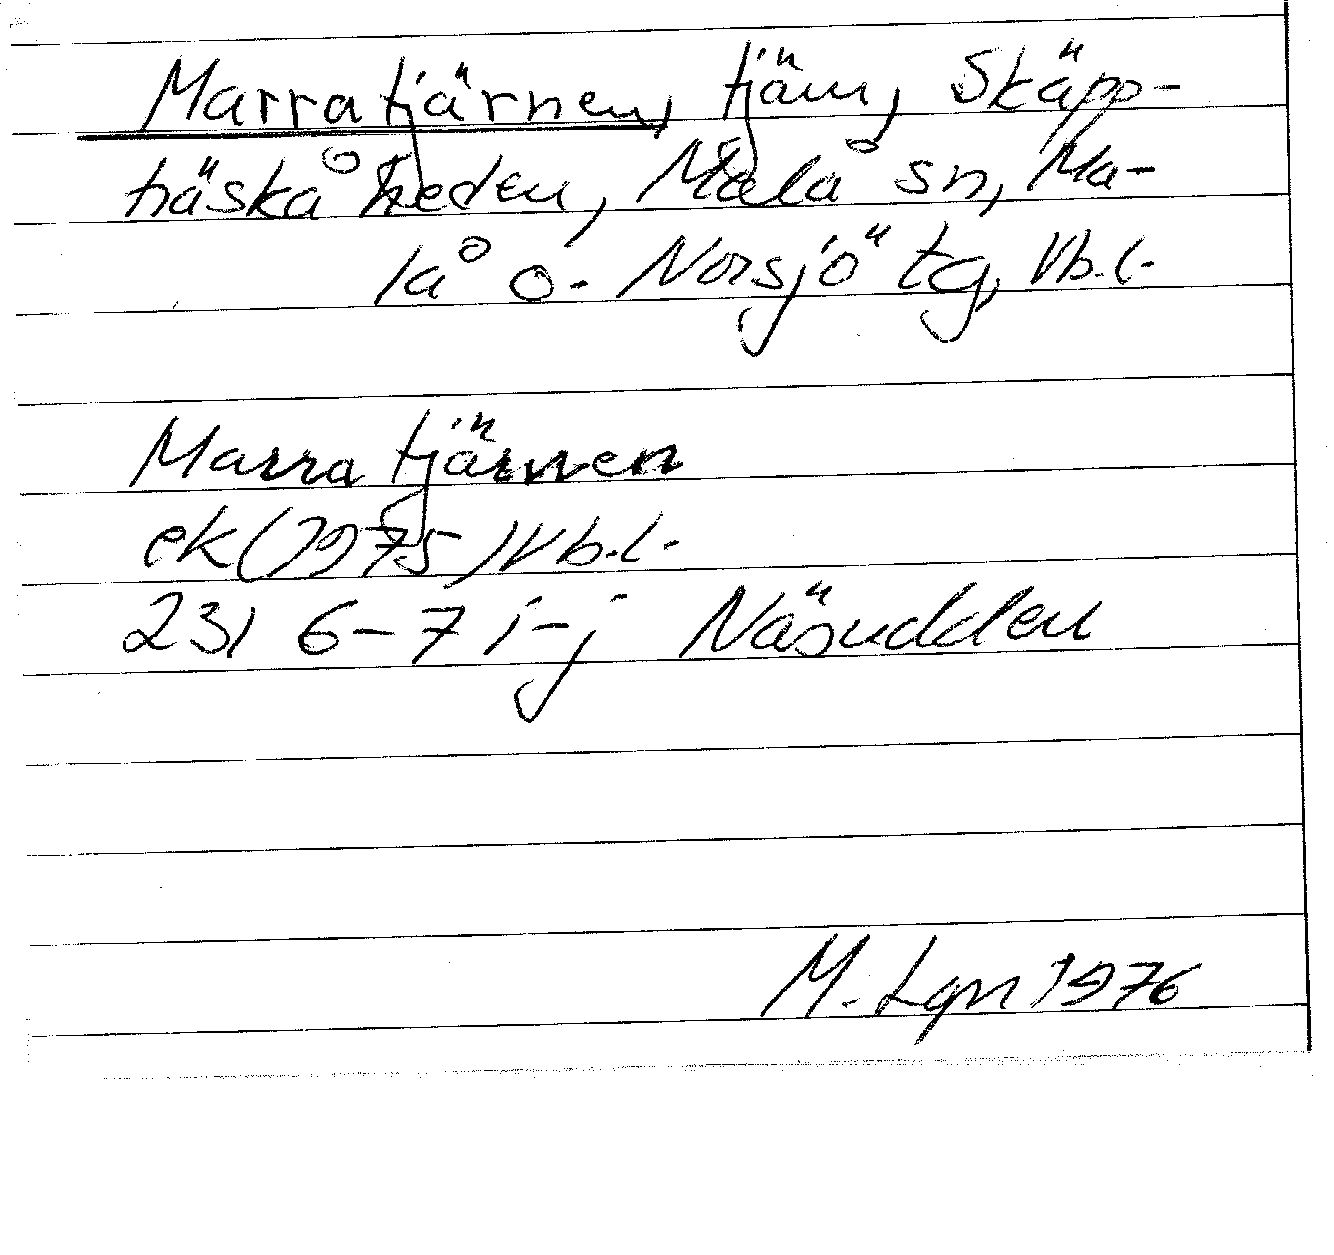 Marratjärnen, tjärn, Skäpp-
träskåheden, Malå sn, Ma-
lå o. Norsjö tg, Vb.l.
Marratjärnen
ek (1975) Vb.l.
23I 6-7 i-j Näsudden
M. Lgn 1976